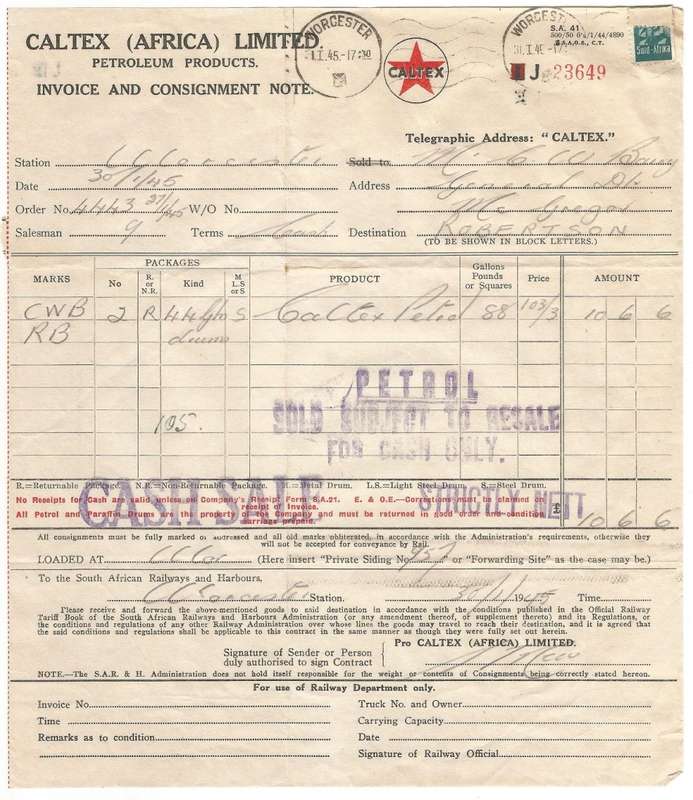 CALTEX (AFRICA) LIMITED.
PETROLEUM PRODUCTS.
INVOICE AND CONSIGNMENT NOTE.
WORCESTER
I.45-17:30
CALTEX
WORCESTER
S.A. 41
Suid-Afrika
J 23649
Telegraphic Address: "CALTEX."
Station Worcester Sold to
Date 30/1/45 Address General Dlr
Order No. 4443 W/O No. McGregor
Salesman 9 Terms Cash Destination ROBERTSON
(TO BE SHOWN IN BLOCK LETTERS.)
MARKS PACKAGES PRODUCT Gallons Pounds or Squares Price AMOUNT
No R. or N.R. Kind M L.S or S.
CWB 2 R 44 S Caltex Petrol 88 103/3 10 6 6
RB drums
PETROL
105.
SOLD SUBJECT TO RESALE
FOR CASH ONLY.
R.=Returnable Package. N.R.=Non-Returnable Package. M.=Metal Drum. L.S.=Light Steel Drum. S.=Steel Drum.
CASH SALE
STRICTLY NETT
No Receipts for Cash are valid unless on Company's Receipt Form S.A.21. E. & O.E.—Corrections must be claimed on receipt of Invoice.
All Petrol and Paraffin Drums are the property of the Company and must be returned in good order and condition, carriage prepaid.
£ 10 6 6
All consignments must be fully marked or addressed and all old marks obliterated, in accordance with the Administration's requirements, otherwise they
will not be accepted for conveyance by Rail.
LOADED AT (Here insert "Private Siding No. 957 or "Forwarding Site" as the case may be.)
To the South African Railways and Harbours,
Worcester Station. 30/1/1945 Time
Please receive and forward the above-mentioned goods to said destination in accordance with the conditions published in the Official Railway
Tariff Book of the South African Railways and Harbours Administration (or any amendment thereof, or supplement thereto) and its Regulations, or
the conditions and regulations of any other Railway Administration over whose lines the goods may travel to reach their destination, and it is agreed that
the said conditions and regulations shall be applicable to this contract in the same manner as though they were fully set out herein.
Pro CALTEX (AFRICA) LIMITED.
Signature of Sender or Person
duly authorised to sign Contract
NOTE.—The S.A.R. & H. Administration does not hold itself responsible for the weight or contents of Consignments being correctly stated hereon.
For use of Railway Department only.
Invoice No. Truck No. and Owner
Time Carrying Capacity
Remarks as to condition Date
Signature of Railway Official